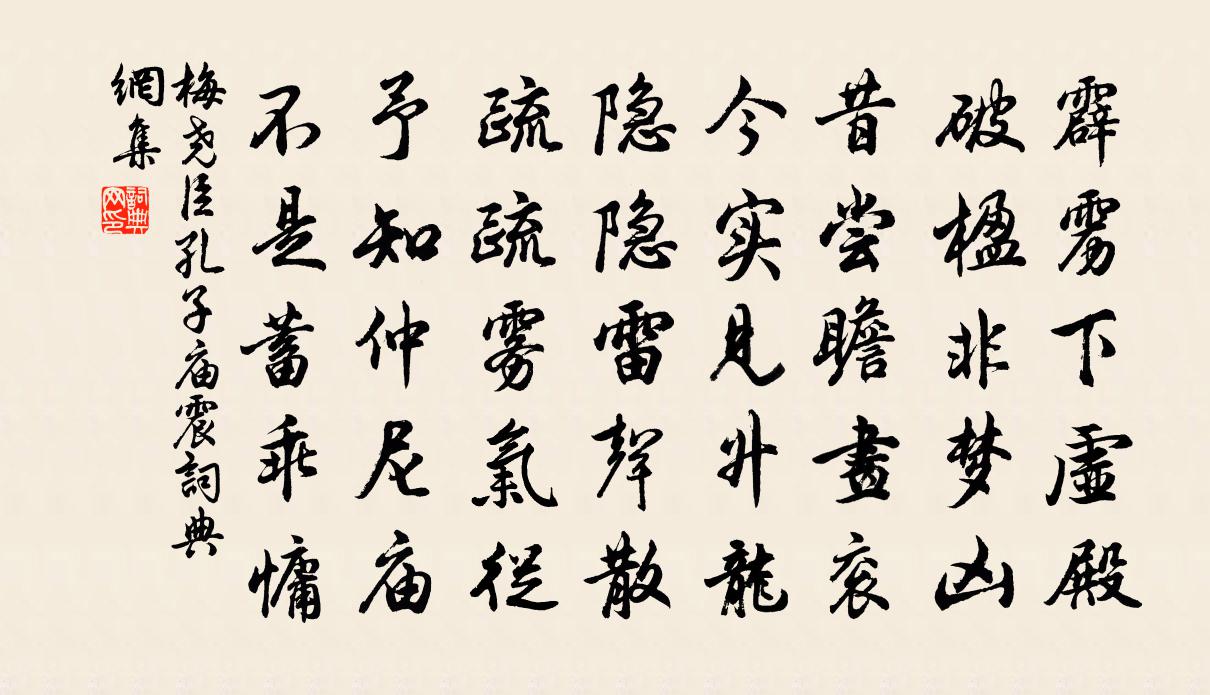 霹雳下虚殿
破楹非梦凶
昔尝瞻畫衮
今实見升龍
隐隐雷聲散
疏疏雾氣従
予知仲尼庙
不是蓄乖慵
梅尧臣孔子庙震詞典
網集
詞典
网印